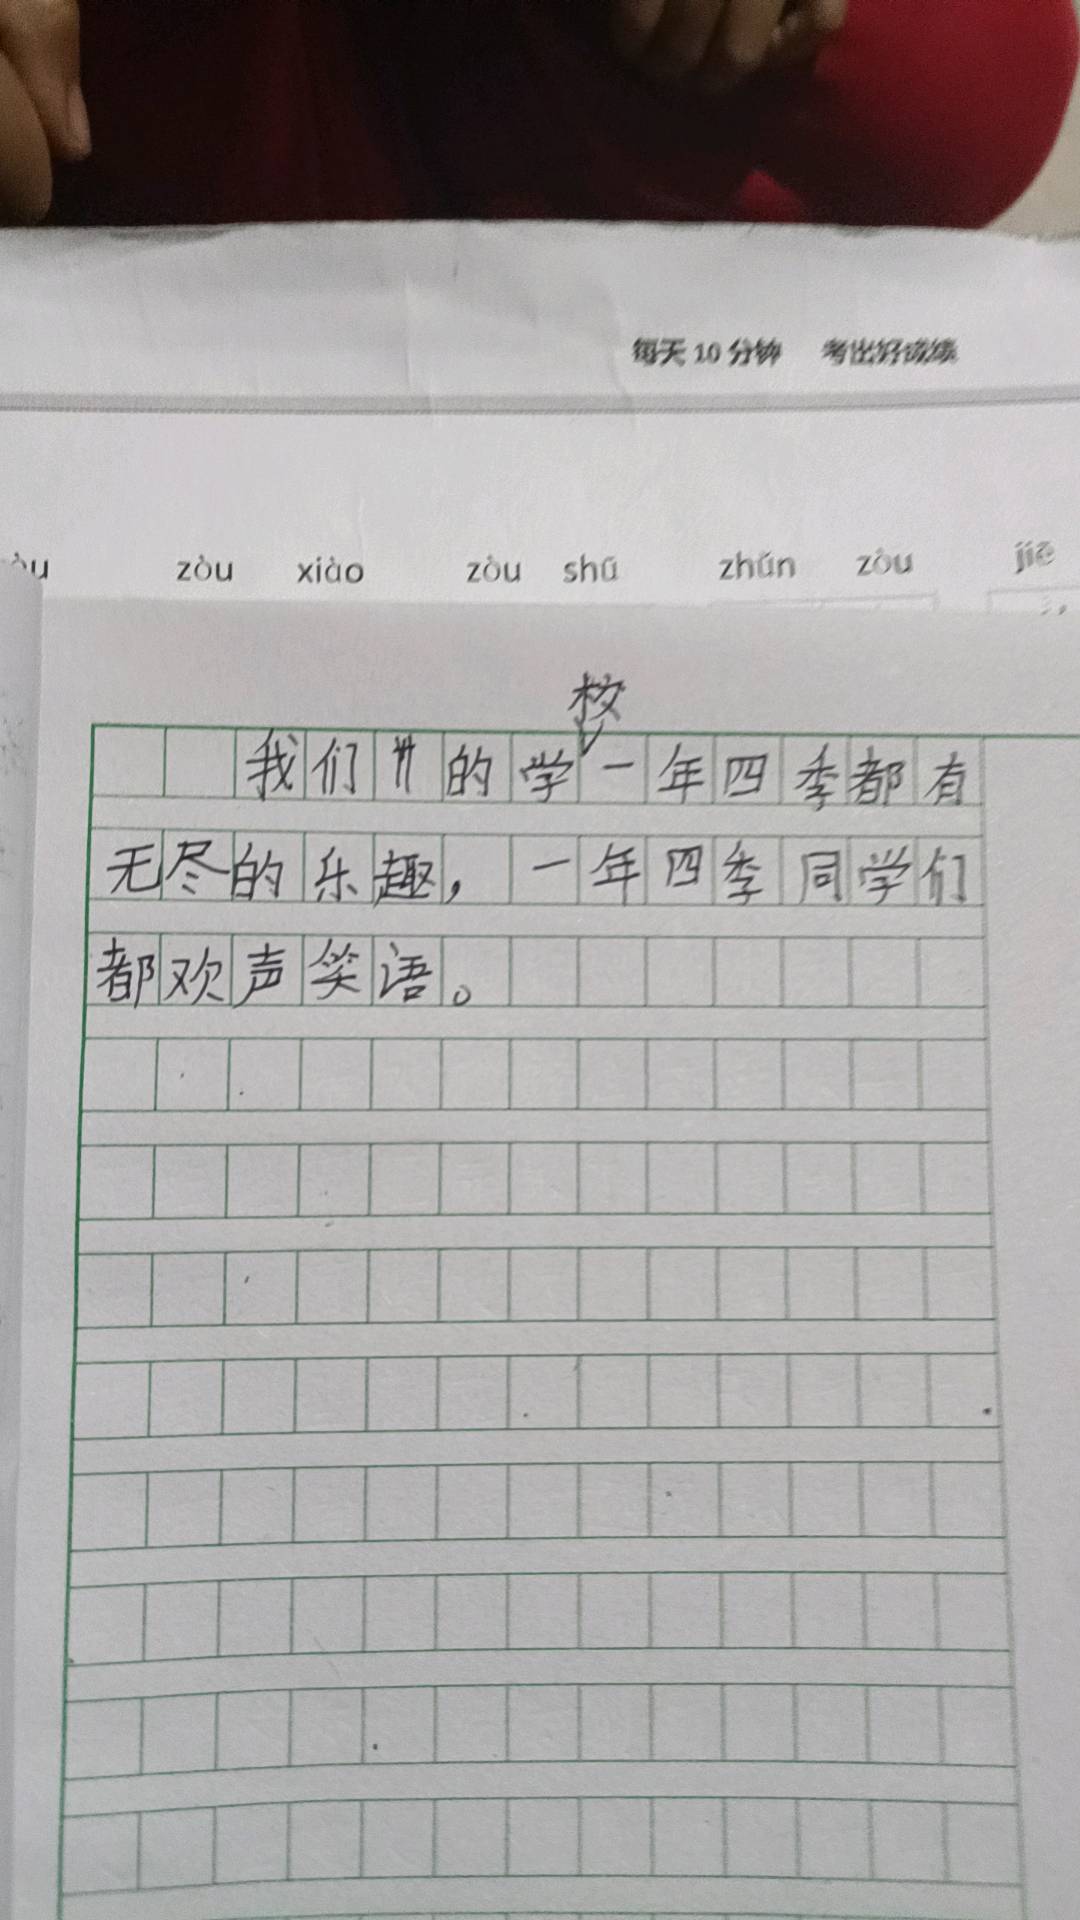 每天10分钟 考出好成绩
zòu xiào zòu shū zhǔn zòu jiē
校
我们的学一年四季都有
无尽的乐趣，一年四季同学们
都欢声笑语。